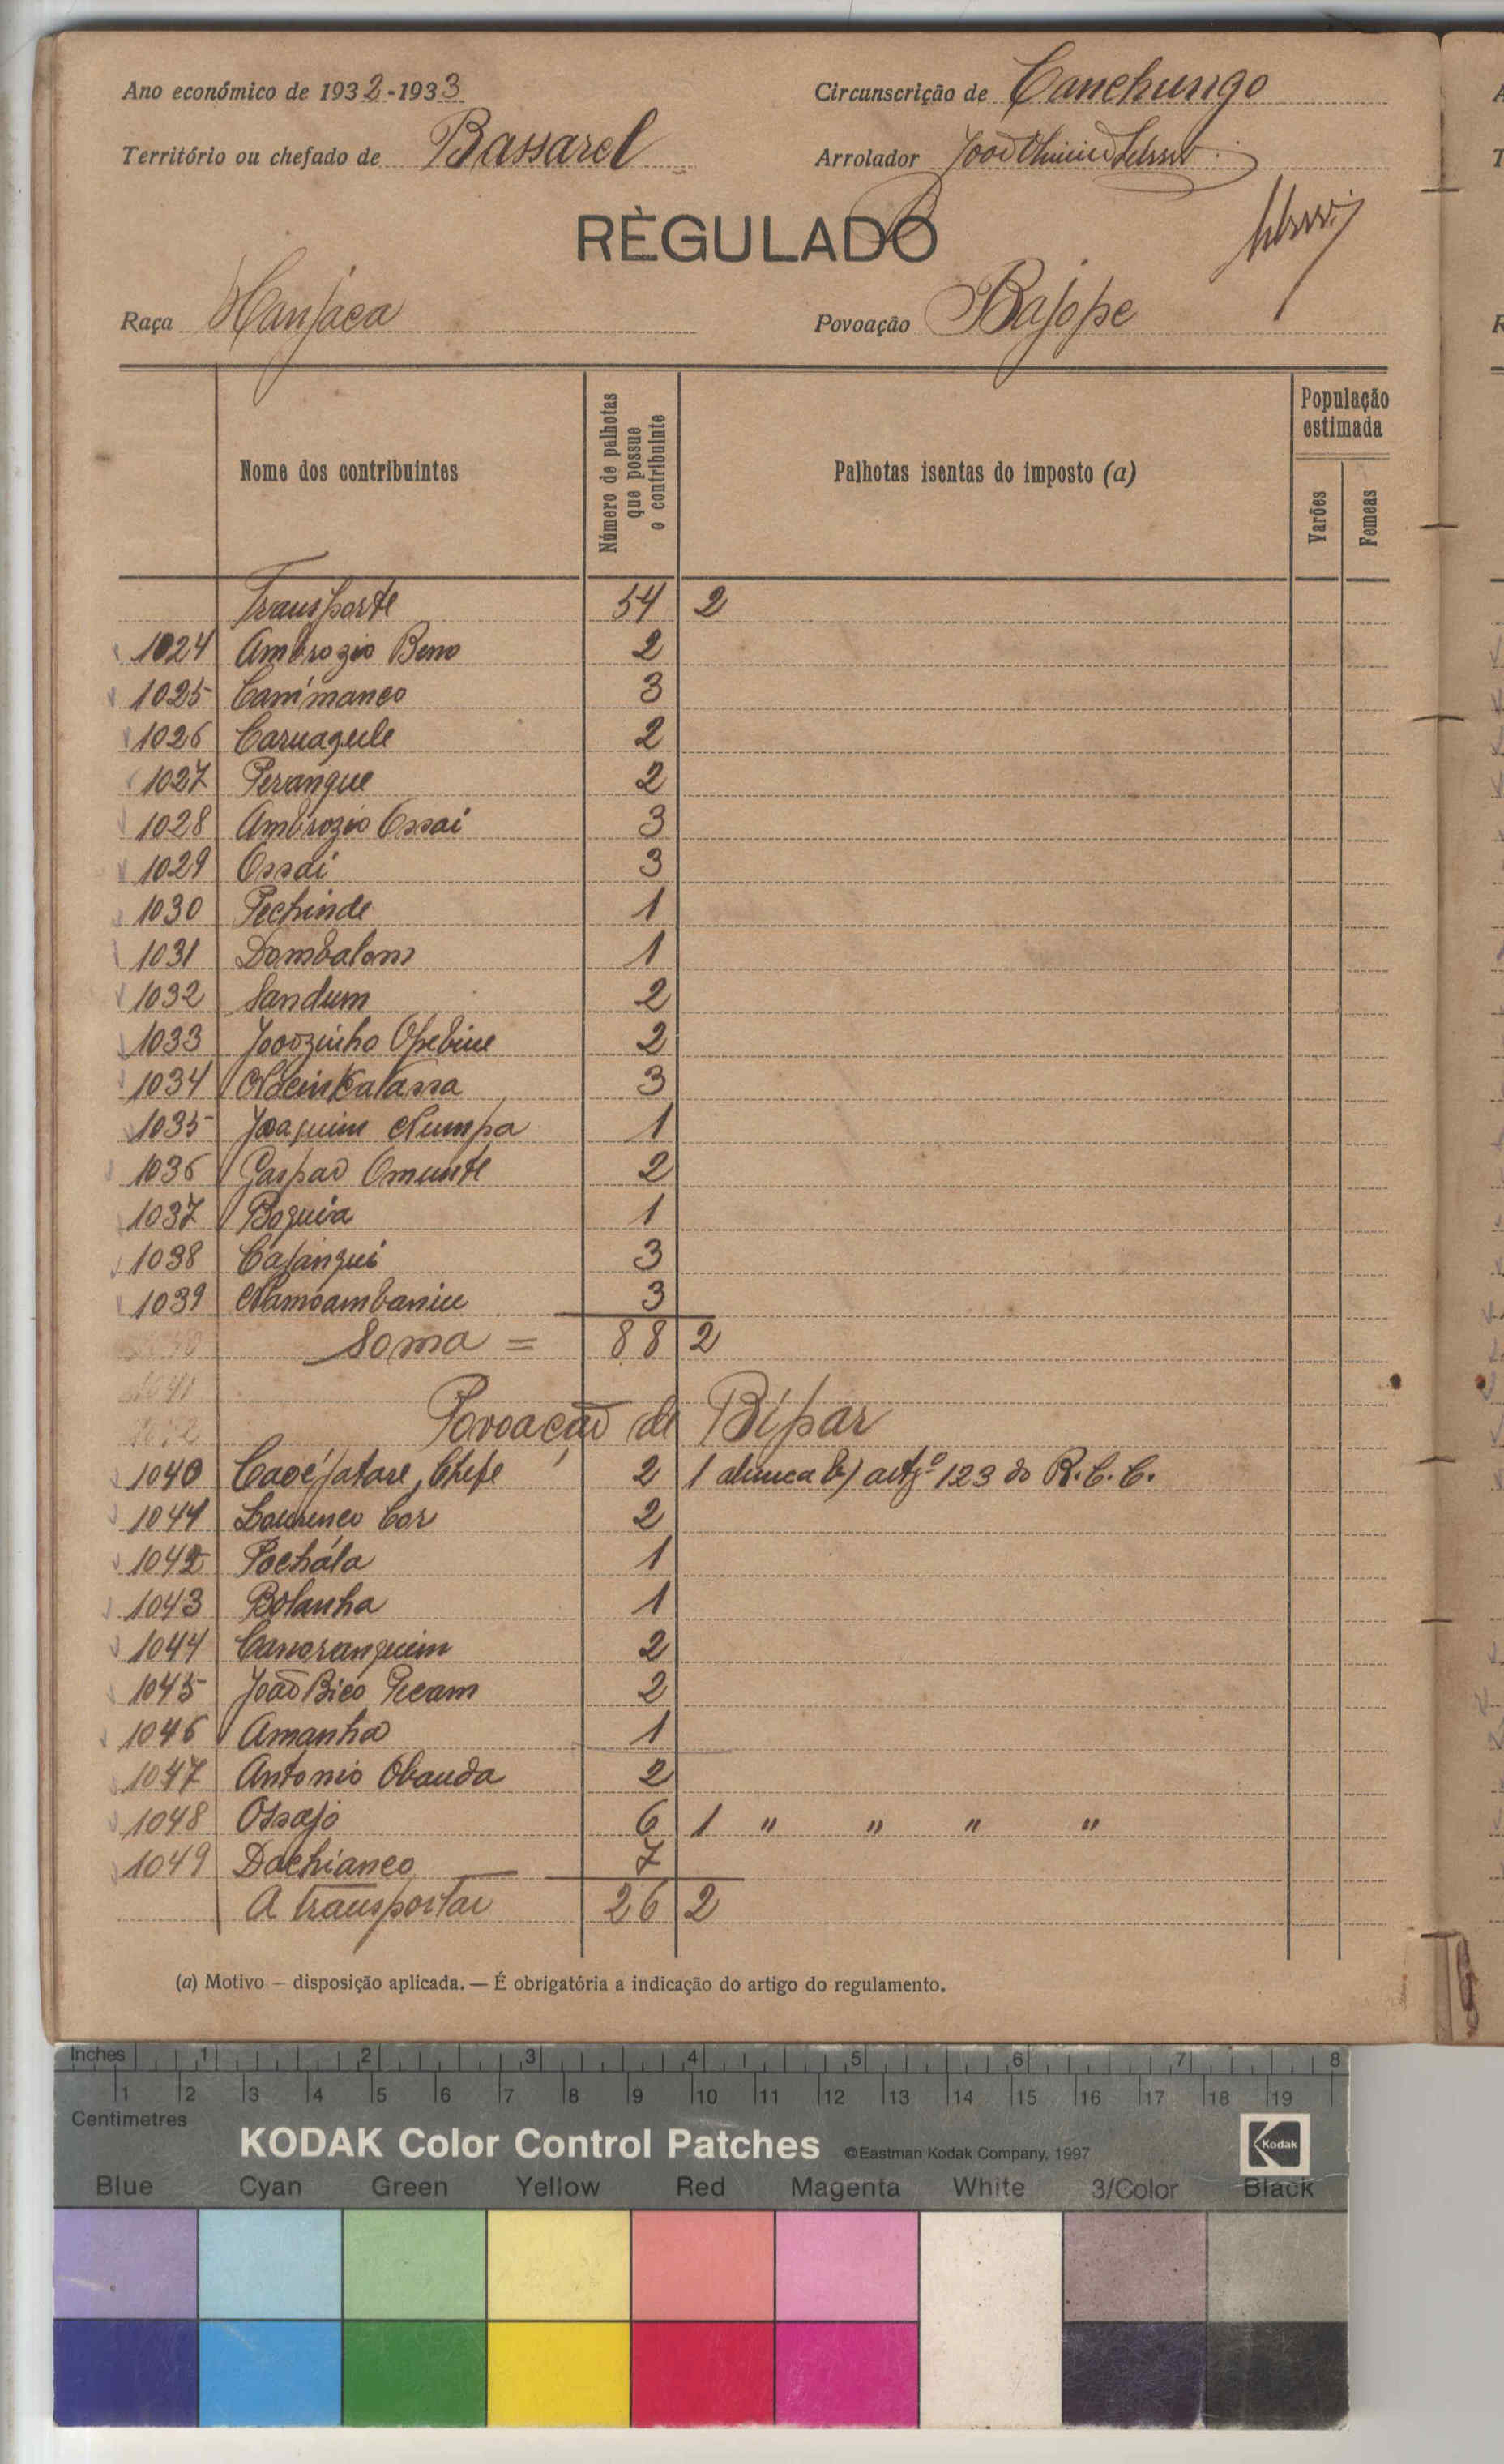 Ano económico de 1932-1933
Circunscrição de Canchungo
Território ou chefado de Bassarel
Arrolador
RÉGULADO
Raça Manjaca
Povoação Bajope
Nome dos contribuintes
Número de palhotas que possue o contribuinte
Palhotas isentas do imposto (a)
População estimada
Varões
Femeas
Transporte 54 2
1024 Ambrozio Beno 2
1025 Canimanco 3
1026 Caruagule 2
1027 Perangue 2
1028 Ambrozio Ossai 3
1029 Ossai 3
1030 Pechinde 1
1031 Dombalom 1
1032 Sandum 2
1033 Joaozinho Opebine 2
1034 3
1035 Joaquim Numpa 1
1036 Gaspar Omunte 2
1037 Boquira 1
1038 Cajangui 3
1039 Namoambaniu 3
Soma = 88 2
Povoação de Bipar
1040 Caoéjatare, Chefe 2 1 alinea b) artgº 123 do R.C.C.
1041 Lourenco Cor 2
1042 Pochála 1
1043 Bolanha 1
1044 Canoranquim 2
1045 João Bico Pecam 2
1046 Amanha 1
1047 Antonio Obanda 2
1048 Ossajo 6 1 " " " "
1049 Dachianco 7
A transportar 26 2
(a) Motivo — disposição aplicada. — É obrigatória a indicação do artigo do regulamento.
Inches 1 2 3 4 5 6 7 8
1 2 3 4 5 6 7 8 9 10 11 12 13 14 15 16 17 18 19
Centimetres
KODAK Color Control Patches ©Eastman Kodak Company, 1997 Kodak
Blue Cyan Green Yellow Red Magenta White 3/Color Black